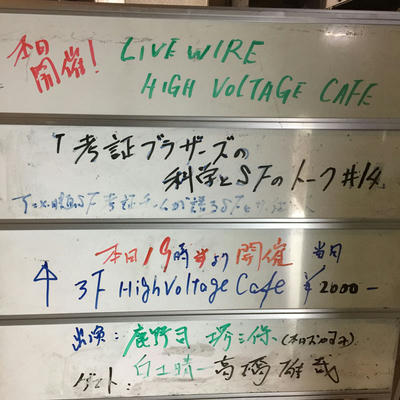 本日
開催!
LIVE WIRE
HIGH VOLTAGE CAFE
「考証ブラザーズの
科学とSFのトーク#14
SF考証
本日19時半より開催 当日
↑ 3F HighVoltage Cafe ¥2000-
出演: 鹿野司 堺三保
ゲスト: 白土晴一 高橋雄哉